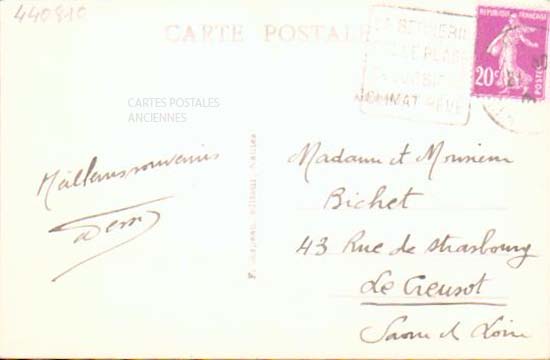 440810
CARTE POSTALE
LA BERNERIE
PLAGE
CLIMAT RÊVÉ
REPUBLIQUE FRANCAISE
20c
POSTES
CARTES POSTALES
ANCIENNES
Meilleurs souvenirs
Madame et Monsieur
Bichet
43 Rue de Strasbourg
Le Creusot
Saone et Loire
éditeur, Nantes